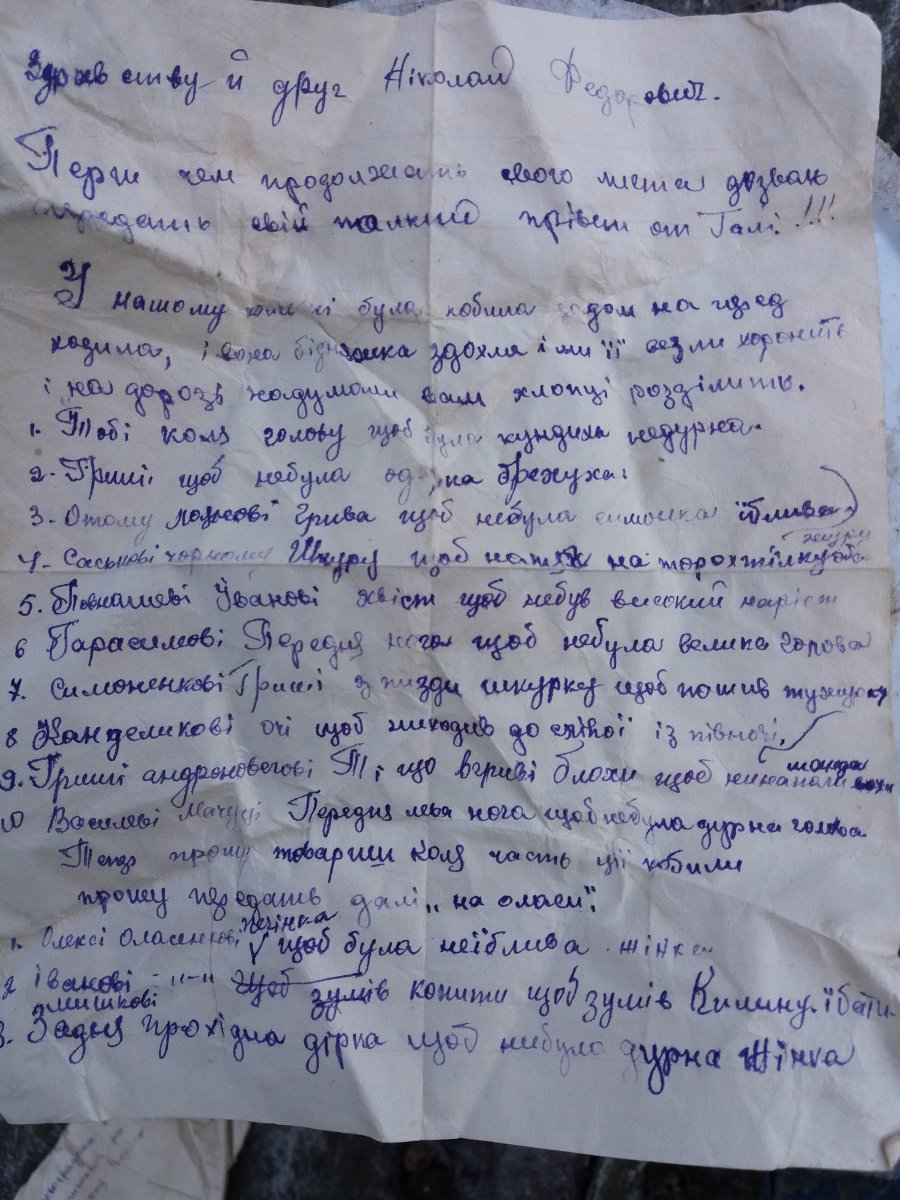 Здравствуй друг Ніколай Федорович.
Перш чем продолжать свого дозваю
передать свій палкий прівєт от Галі!!!
У нашому була кобила задом на перед
ходила, і вона бідняжка здохла і ми її везли хоронить
і на дорозі надумали вам хлопці розділить.
1. Тобі Коля голову щоб була кундиха недурна.
2. Гриші щоб небула одарка брехуха.
3. Отому грива щоб небула симонка їблива
4. Саськові чорному Шкуру щоб на торохтілку
5. Іванові хвіст щоб небув високий наріст
6 Гарасимові Передня нога щоб небула велика голова
7. Симоненкові Гриші з пизди шкурку щоб пошив тужурку
8 Канделикові очі щоб ниходив до сліпої із півночі.
9. Гриші андроновегові Ті що вгриві блохи щоб нинапали манда
10 Василеві Мачуці Передня ліва нога щоб небула дурна голова
Тепер прошу товариш Коля часть ції кобили
прошу передать далі „на оласи".
1. Олексі Оласенкові печінка щоб була неїблива жінка
2 Івакові -"-" Щоб зумів копити щоб зумів Килину їбати
3. мишкові Задня прохідна дірка щоб небула дурна жінка